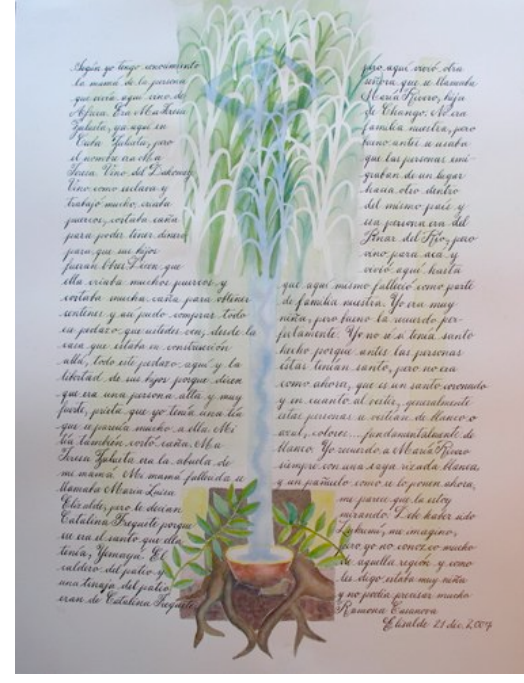 Según yo tengo conocimiento
la mamá de la persona
que vivía aquí vino de
África. Era Ma Teresa
Zulueta, ya aquí en
Cuba Zulueta, pero
el nombre era Ma
Teresa. Vino del Dahomey
Vino como esclava y
trabajó mucho, criaba
puercos, cortaba caña
para poder tener dinero
para que sus hijos
fueran libres. Dicen que
ella criaba muchos puercos y
cortaba mucha caña para obtener
centenes y así pudo comprar todo
ese pedazo que ustedes ven, desde la
casa que estaba en construcción
allá, todo este pedazo aquí y la
libertad de sus hijos porque dicen
que era una persona alta y muy
fuerte, prieta que yo tenía una tía
que se parecía mucho a ella. Mi
tía también cortó caña. Ma
Teresa Zulueta era la abuela de
mi mamá. Mi mamá fallecida se
llamaba María Luisa
Elizalde, pero le decían
Catalina Treguete porque
ese era el santo que ella
tenía, Yemayá. El
caldero del patio y
una tinaja del patio
eran de Catalina Treguete
pero aquí vivió otra
señora que se llamaba
María Rivero, hija
de Chango. No era
familia nuestra, pero
bueno antes se usaba
que las personas emi-
graban de un lugar
hacia otro dentro
del mismo país y
esa persona era del
Pinar del Río, pero
vino para acá y
vivió aquí hasta
que aquí mismo falleció como parte
de familia nuestra. Yo era muy
niña, pero bueno la recuerdo per-
fectamente. Yo no se si tenía santo
hecho porque antes las personas
estas tenían santo, pero no era
como ahora, que es un santo coronado
y en cuanto al vestir, generalmente
estas personas se vestían de blanco o
azul, colores... fundamentalmente de
blanco. Yo recuerdo a María Rivero
siempre con una saya rizada blanca,
y un pañuelo como se lo ponen ahora,
me parece que la estoy
mirando. Debe haber sido
Lukumí, me imagino,
pero yo no conozco mucho
de aquella región y como
les digo estaba muy niña
y no podía precisar mucho
Ramona Casanova
Elizalde 21 dic. 2007